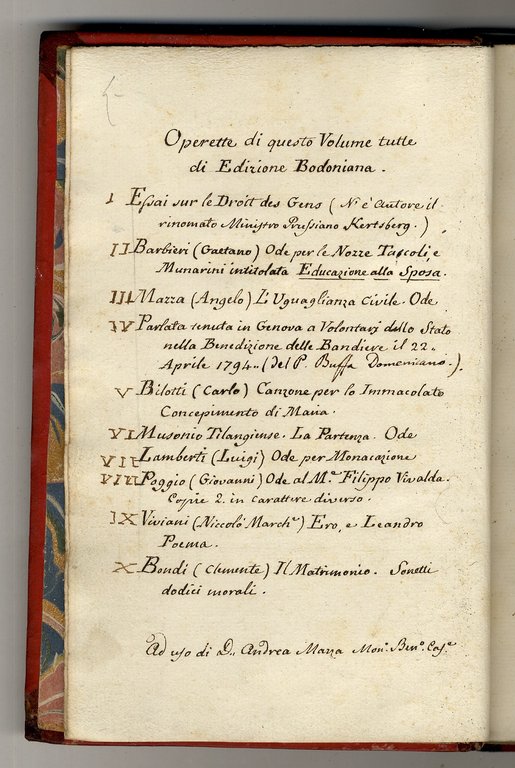 Operette di questo Volume tutte
di Edizione Bodoniana.
I Essai sur le Droit des Gens ( N'è Autore il
rinomato Ministro Prussiano Kertsberg. )
II Barbieri (Gaetano) Ode per le Nozze Tascoli, e
Munarini intitolata Educazione alla Sposa.
III Mazza (Angelo) L'Uguaglianza Civile. Ode
IV Parlata tenuta in Genova a Volontarj dello Stato
nella Benedizione delle Bandiere il 22.
Aprile 1794.. (del P. Buffa Domenicano.)
V Bilotti (Carlo) Canzone per lo Immacolato
Concepimento di Maria.
VI Musonio Tilangiense. La Partenza. Ode
VII Lamberti (Luigi) Ode per Monacazione
VIII Poggio (Giovanni) Ode al M.e Filippo Vivalda.
Copie 2. in carattere diverso.
IX Viviani (Niccolò March.e) Ero, e Leandro
Poema.
X Bondi (Clemente) Il Matrimonio. Sonetti
dodici morali.
Ad uso di D.. Andrea Mazza Mon.o Ben.o Cas.e